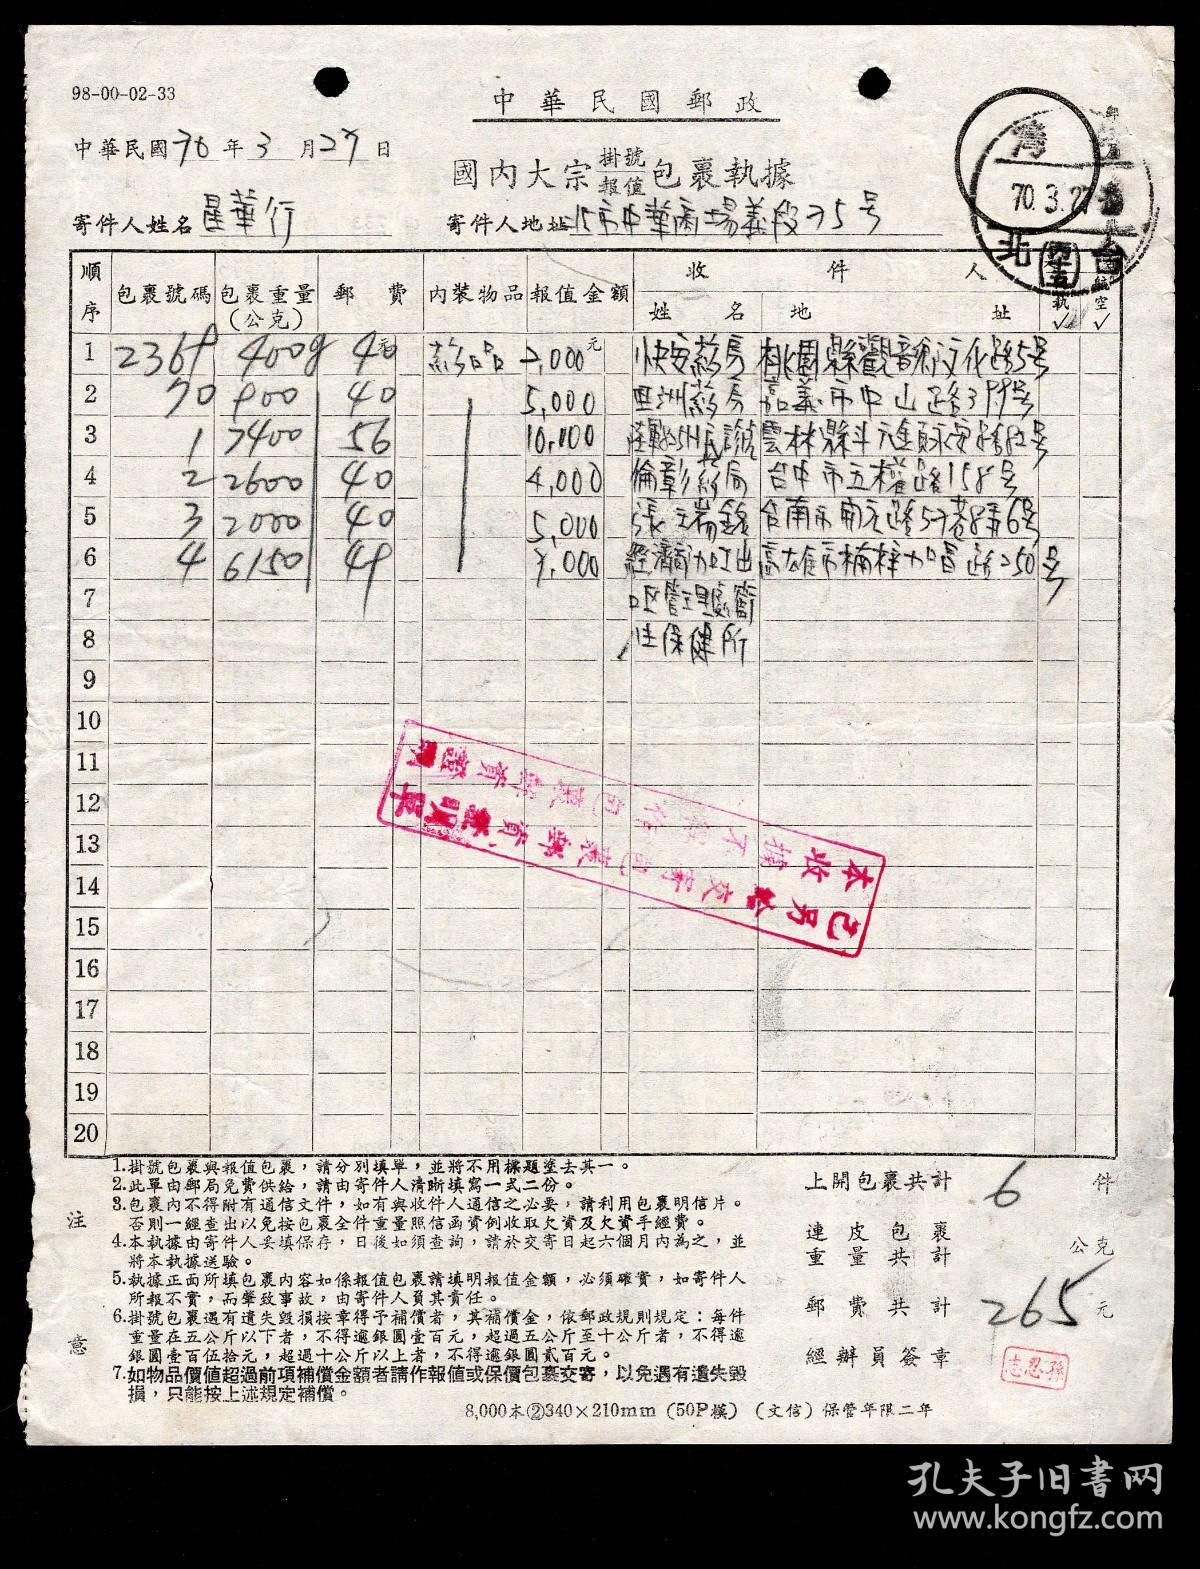 98-00-02-33
中華民國郵政
中華民國70年3月27日
國內大宗掛號報值包裹執據
寄件人姓名 星華行 寄件人地址 北市中華商場義段35号
灣
70.3.27
台北
順序 包裹號碼 包裹重量(公克) 郵費 內裝物品 報值金額 收件人 姓名 地址 航空
1 400g 40元 葯品 元 快安葯房 桃園縣觀音鄉文化路5号
2 70 900 40 5,000 亞洲葯房 嘉義市中山路399号
3 1 7400 56 10,100
4 2 2600 40 4,000 倫彰葯局 台中市五權路158号
5 3 2000 40 5,000 張瑞銘
6 4 6150 49 經濟部加工出 高雄市楠梓加昌路250号
7 口區管理處附
8 保健所
9
10
11
12
13
14
15
16
17
18
19
20
本收據不得作包裹郵資證明
已另給交寄包裹郵資證明單
注意
1.掛號包裹與報值包裹,請分別填單,並將不用標題塗去其一。
2.此單由郵局免費供給,請由寄件人清晰填寫一式二份。
3.包裹內不得附有通信文件,如有與收件人通信之必要,請利用包裹明信片。
否則一經查出以免按包裹全件重量照信函資例收取欠資及欠資手續費。
4.本執據由寄件人妥填保存,日後如須查詢,請於交寄日起六個月內為之,並
將本執據送驗。
5.執據正面所填包裹內容如係報值包裹請填明報值金額,必須確實,如寄件人
所報不實,而肇致事故,由寄件人員其責任。
6.掛號包裹遇有遺失毀損按章得予補償者,其補償金,依郵政規則規定:每件
重量在五公斤以下者,不得逾銀圓壹百元,超過五公斤至十公斤者,不得逾
銀圓壹百伍拾元,超過十公斤以上者,不得逾銀圓貳百元。
7.如物品價值超過前項補償金額者請作報值或保價包裹交寄,以免遇有遺失毀
損,只能按上述規定補償。
上開包裹共計 6 件
連皮包裹重量共計 公克
郵費共計 265 元
經辦員簽章 孫忍志
8,000本②340×210mm (50P模) (文信) 保管年限二年
孔夫子旧書网
www.kongfz.com